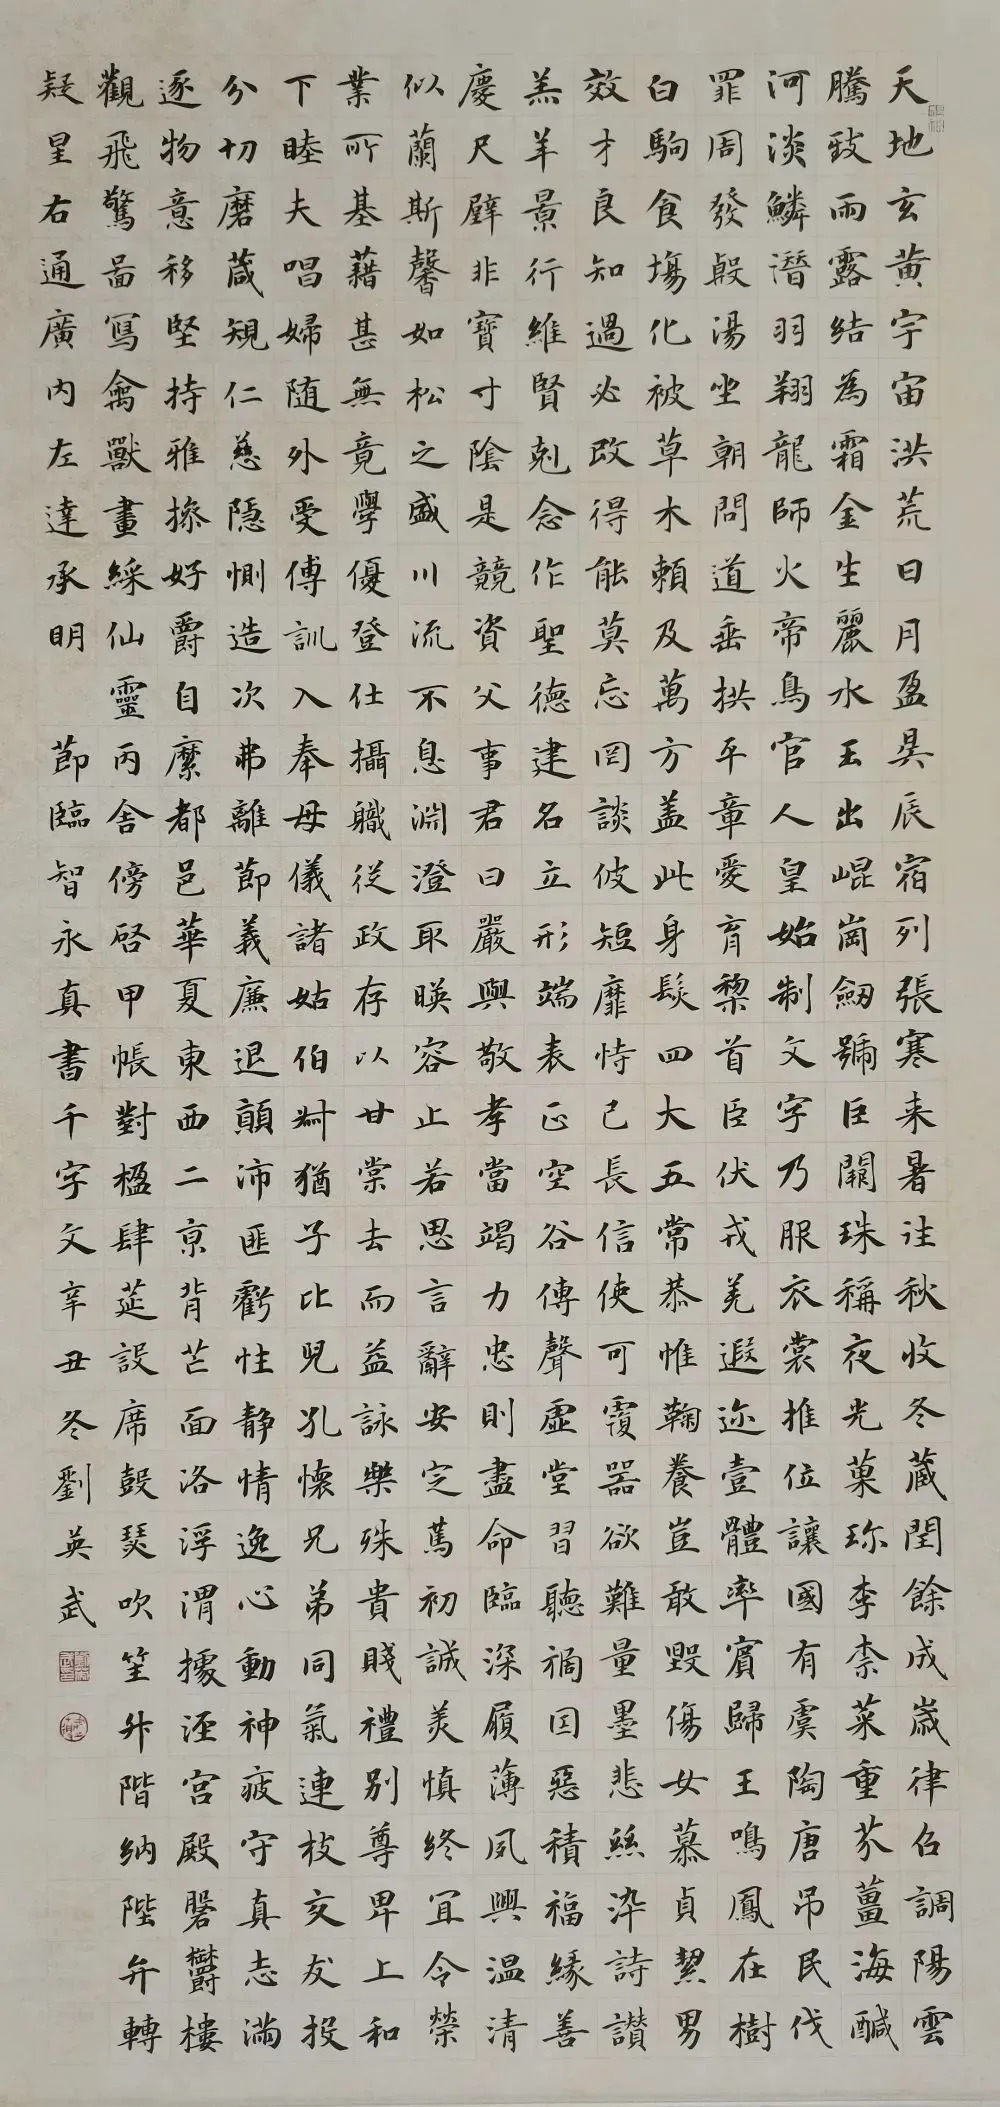 天地玄黃宇宙洪荒日月盈昃辰宿列張寒来暑往秋收冬蔵閏餘成歲律召調陽雲
騰致雨露結為霜金生麗水玉出崐崗劒號巨闕珠稱夜光菓珎李柰菜重芥薑海醎
河淡鱗潛羽翔龍師火帝鳥官人皇始制文字乃服衣裳推位讓國有虞陶唐吊民伐
罪周發殷湯坐朝問道垂拱平章愛育黎首臣伏戎羌遐迩壹體率賓歸王鳴鳳在樹
白駒食場化被草木賴及萬方盖此身髮四大五常恭惟鞠養豈敢毀傷女慕貞絜男
效才良知過必改得能莫忘罔談彼短靡恃己長信使可覆器欲難量墨悲絲染詩讃
羔羊景行維賢剋念作聖德建名立形端表正空谷傳聲虛堂習聽禍因惡積福緣善
慶尺璧非寶寸陰是競資父事君曰嚴與敬孝當竭力忠則盡命臨深履薄夙興温清
似蘭斯馨如松之盛川流不息淵澄取暎容止若思言辭安定篤初誠美慎終宜令榮
業所基藉甚無竟學優登仕攝職從政存以甘棠去而益詠樂殊貴賤禮別尊卑上和
下睦夫唱婦随外受傅訓入奉母儀諸姑伯叔猶子比兒孔懷兄弟同氣連枝交友投
分切磨箴規仁慈隠惻造次弗離節義廉退顛沛匪虧性静情逸心動神疲守真志滿
逐物意移堅持雅操好爵自縻都邑華夏東西二京背芒面洛浮渭據涇宮殿磐欝樓
觀飛驚啚寫禽獸畫綵仙靈丙舍傍啓甲帳對楹肆莚設席鼓瑟吹笙升階納陛弁轉
疑星右通廣内左達承明
節臨智永真書千字文辛丑冬劉英武